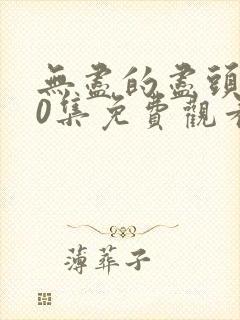 無盡的盡頭
0集免費觀看
薄葬子